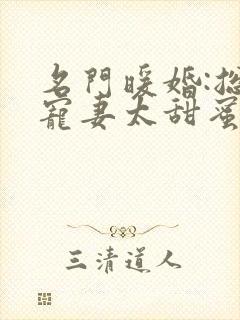 名門暖婚:
寵妻太甜蜜
三清道人